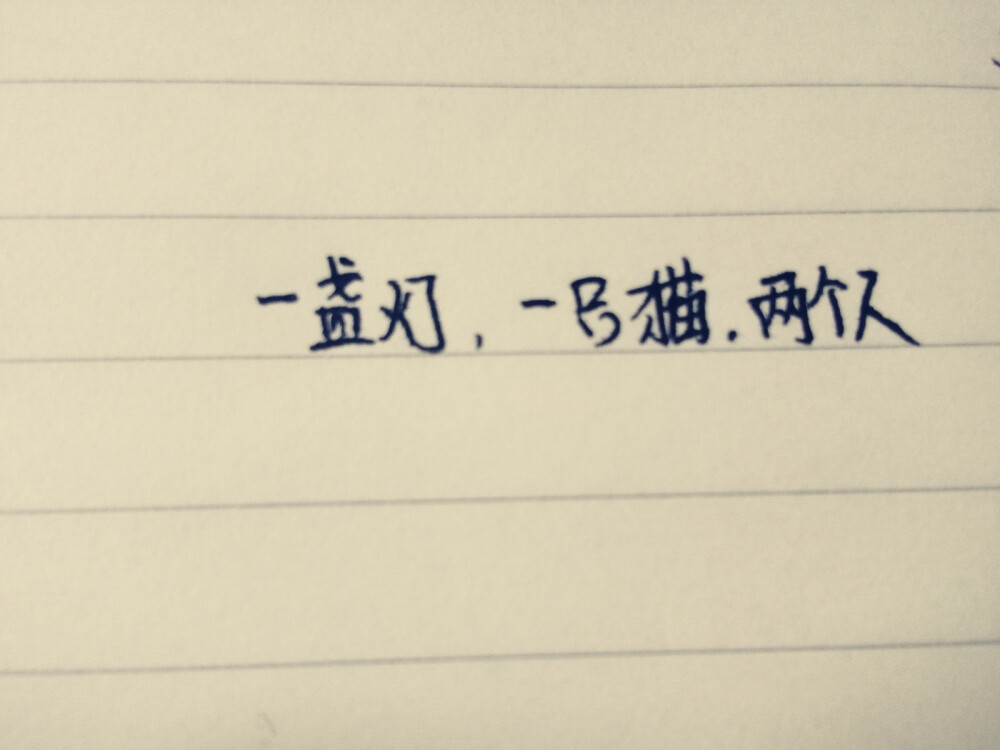 一盏灯，一只猫.两个人